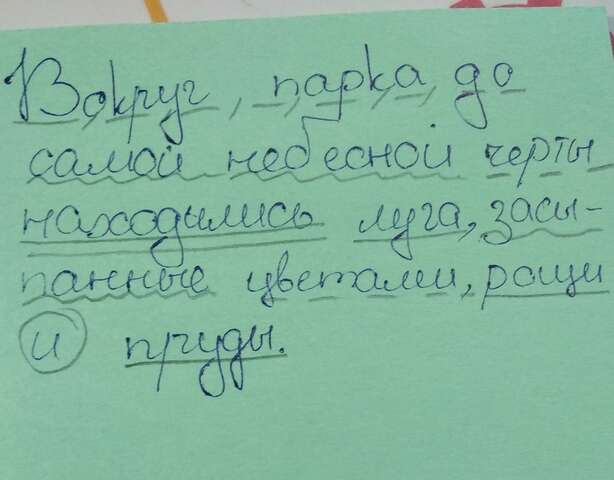 Вокруг, парка, до
самой небесной черты
находились луга, засы-
панные цветами, рощи
и пруды.